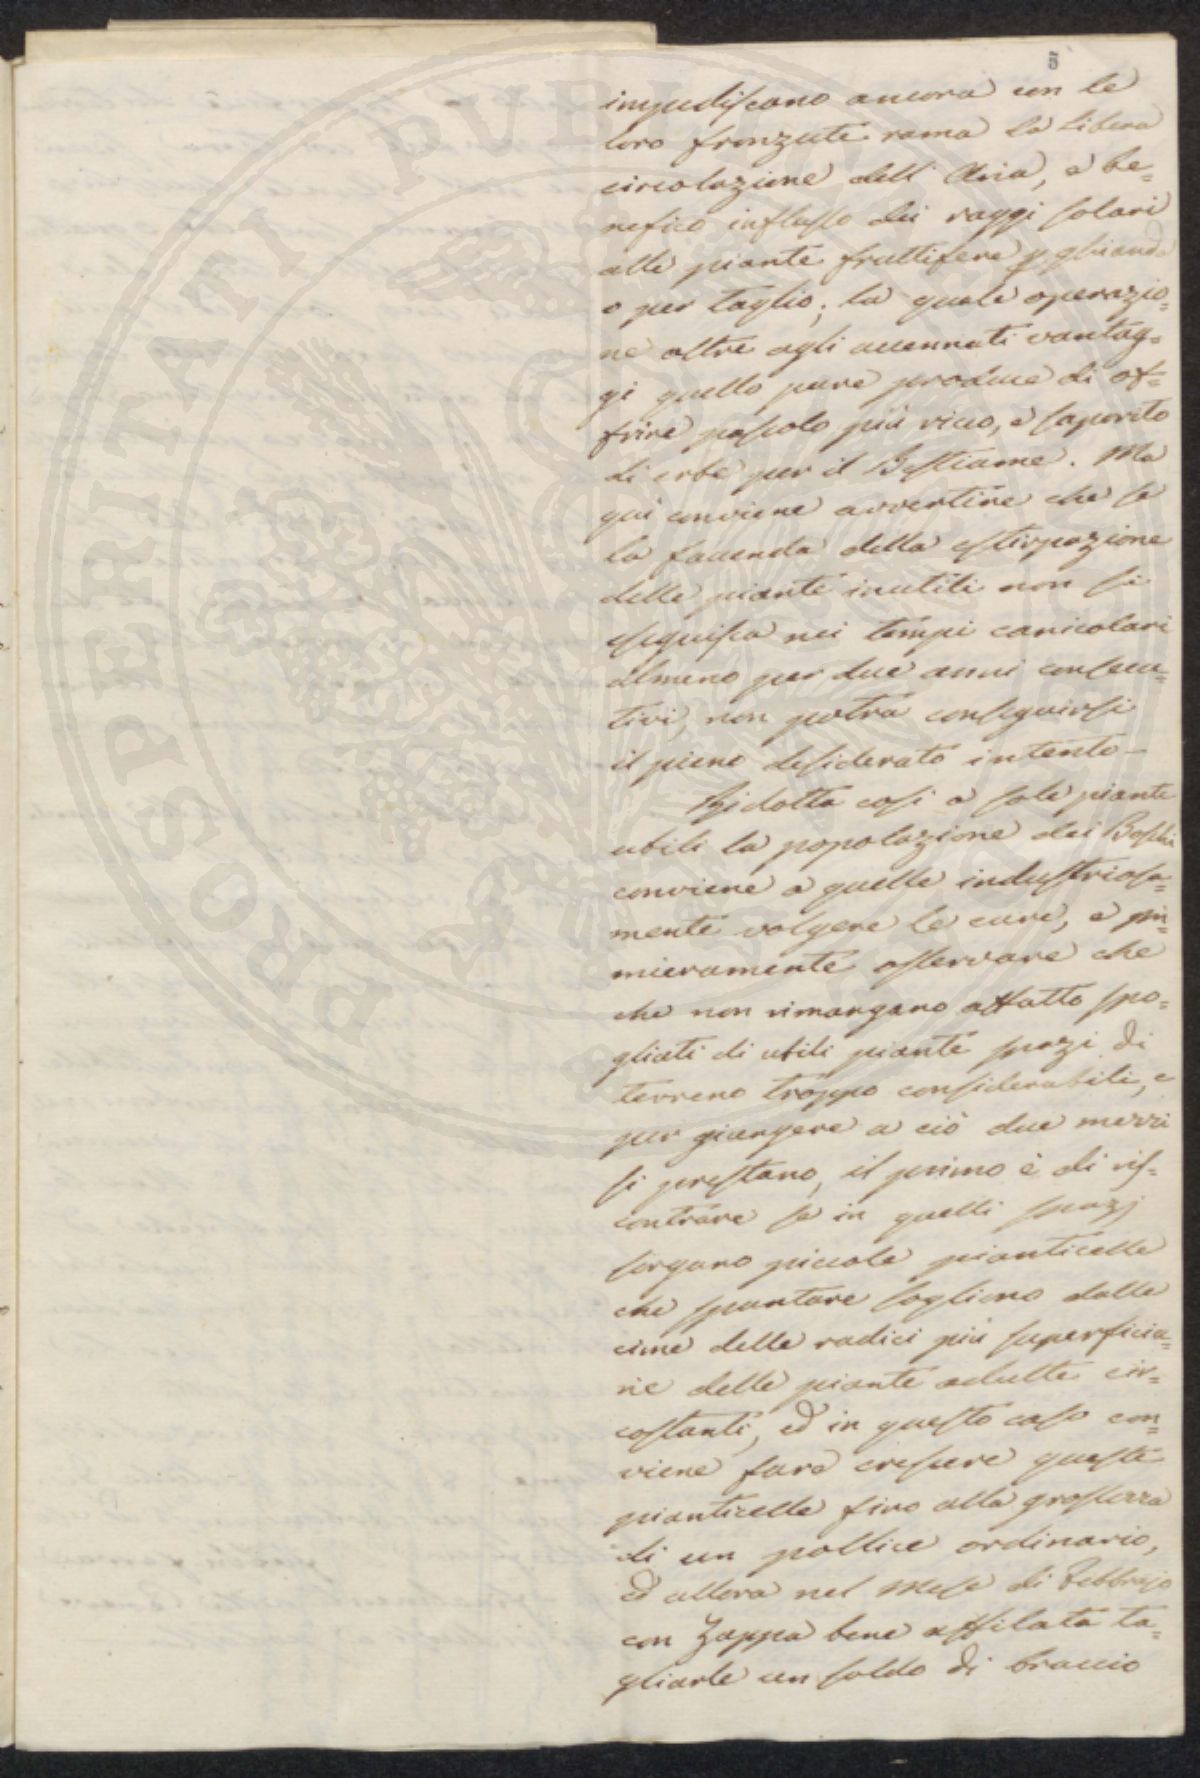 5
impediscano ancora con le
loro fronzute rama la libera
circolazione dell' Aria, e be=
nefico influsso dei raggi solari
alle piante fruttifere p ghianda
o per taglio; la quale operazio=
ne oltre agli accennati vantag=
gi quello pure produce di of=
frire pascolo più ricco, e saporito
di erbe per il Bestiame. Ma
quì conviene avvertire che se
la faccenda della estirpazione
delle piante inutili non si
eseguisca nei tempi canicolari
almeno per due anni consecu=
tivi, non potrà conseguirsi
il pieno desiderato intento —
Ridotta così a sole piante
utili la popolazione dei Boschi
conviene a quelle industriosa=
mente volgere le cure, e pri=
mieramente osservare che
che non rimangano affatto spo=
gliati di utili piante spazi di
terreno troppo considerabili, e
per giungere a ciò due mezzi
si prestano, il primo è di ris=
contrare se in quelli spazj
sorgano piccole pianticelle
che spuntare sogliono dalle
cime delle radici più superficia=
rie delle piante adulte cir=
costanti, ed in questo caso con=
viene fare crescere queste
pianticelle fino alla grossezza
di un pollice ordinario,
ed allora nel Mese di Febbrajo
con Zappa bene affilata ta=
gliarle un soldo di braccio
PROSPERITATI PUBLIC